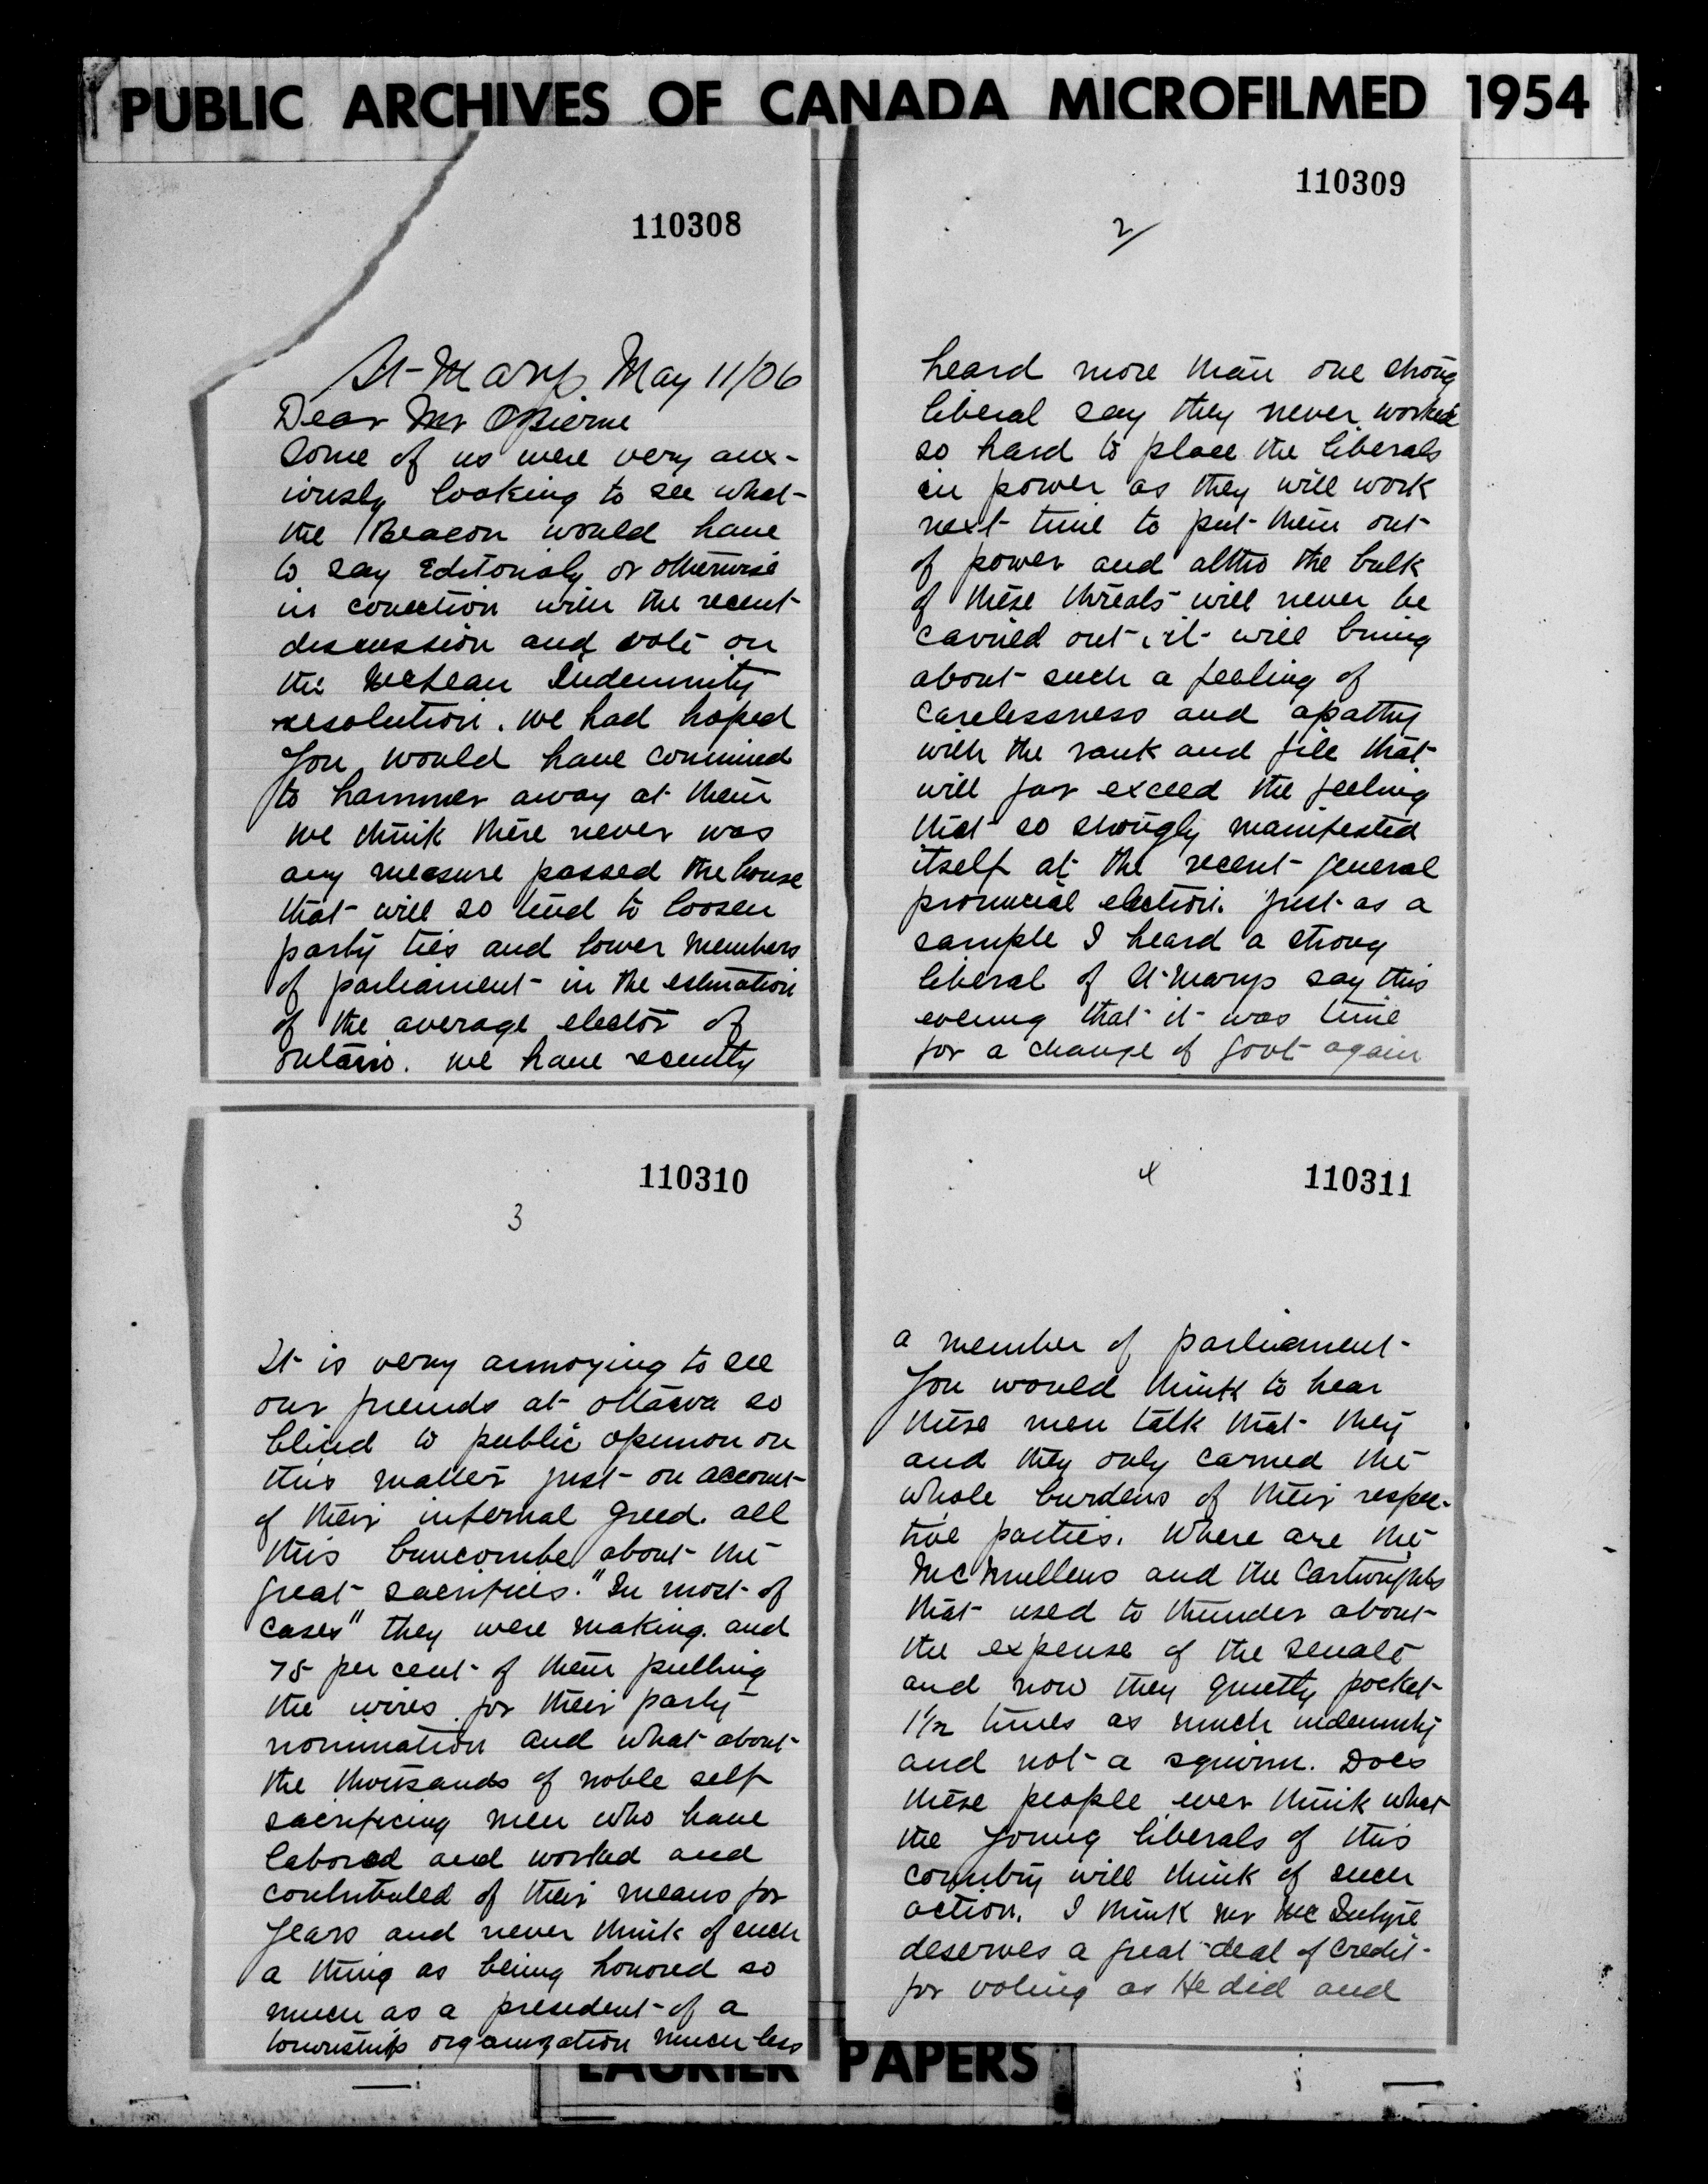 PUBLIC ARCHIVES OF CANADA MICROFILMED 1954
110308
St-Marys May 11/06
Dear Mr OBeirne
Some of us were very anx-
iously looking to see what
the Beacon would have
to say Editorialy or otherwise
in conection with the recent
discussion and vote on
the McLean Indemnity
resolution. we had hoped
you would have continued
to hammer away at them
we think there never was
any measure passed the house
that will so tend to loosen
party ties and lower members
of parliament in the estimation
of the average elector of
Ontario. we have recently
110309
2/
heard more than one strong
liberal say they never worked
so hard to place the liberals
in power as they will work
next time to put them out
of power and altho the bulk
of these threats will never be
carried out, it will bring
about such a feeling of
carelessness and apathy
with the rank and file that
will far exceed the feeling
that so strongly manifested
itself at the recent general
provincial election. Just as a
sample I heard a strong
liberal of St-Marys say this
evening that it was time
for a change of Govt again
110310
3
It is very annoying to see
our friends at Ottawa so
blind to public opinion on
this matter just on account
of their infernal greed. all
this buncombe about the
great sacrifices. "In most of
cases" they were making. and
75 per cent of them pulling
the wires for their party
nomination and what about
the thousands of noble self
sacrificing men who have
labored and worked and
contributed of their means for
years and never think of such
a thing as being honored so
much as a president of a
township organization much less
110311
4
a member of parliament
You would think to hear
these men talk that they
and they only carried the
whole burdens of their respec-
tive parties. Where are the
McMullens and the Cartwrights
that used to thunder about
the expense of the senate
and now they quietly pocket
1½ times as much indemnity
and not a squirm. Does
these people ever think what
the young liberals of this
country will think of such
action. I think Mr McIntyre
deserves a great deal of credit
for voting as He did and
LAURIER PAPERS